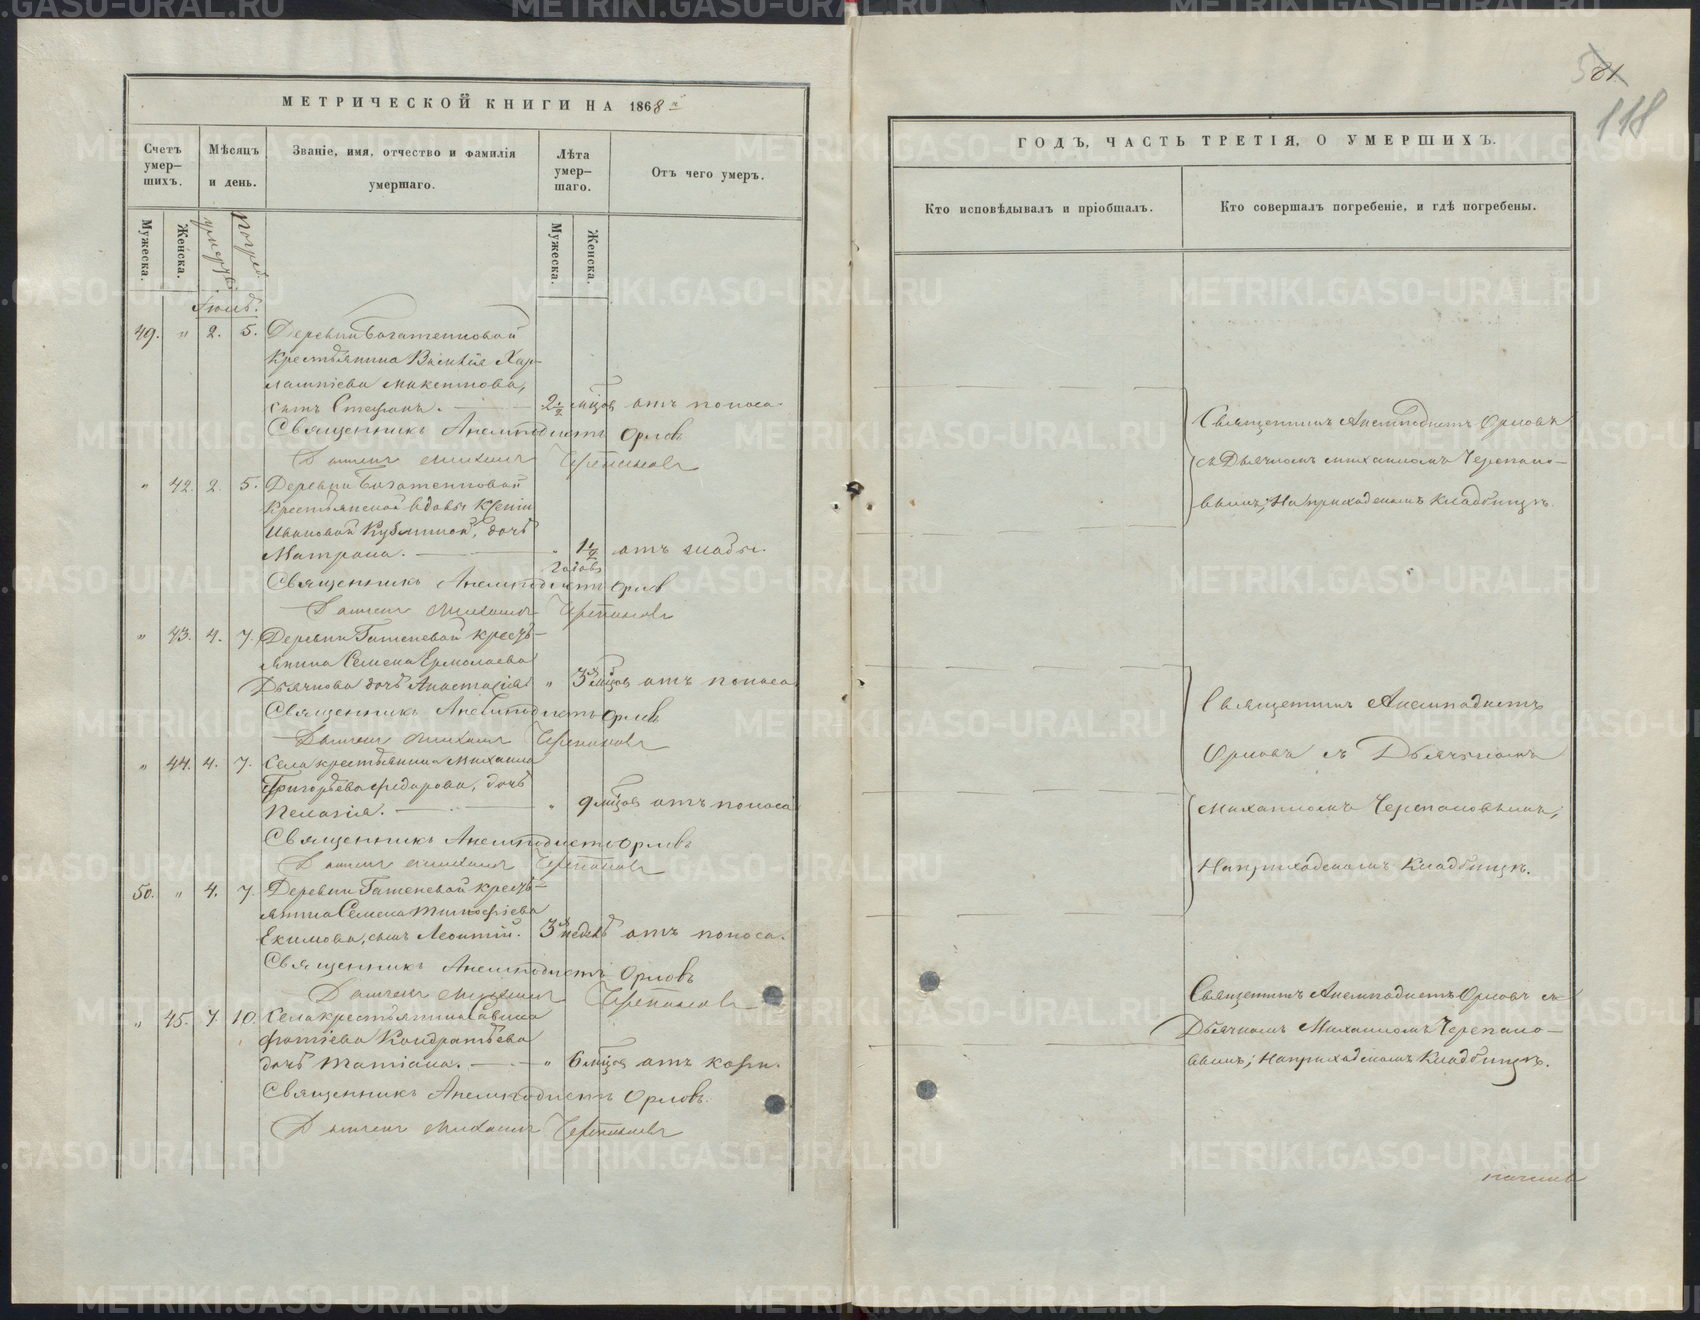 МЕТРИЧЕСКОЙ КНИГИ НА 1868 й
Счетъ умер—шихъ.
Мѣсяцъ и день.
Званіе, имя, отчество и фамилія умершаго.
Лѣта умер—шаго.
Отъ чего умеръ.
Мужеска.
Женска.
умерш.
погреб.
Мужеска.
Женска.
Іюль.
49. " 2. 5. Деревни
крестьянина Василія Хар-
лампіева
сынъ Стефанъ. 2 1/2 мѣсяц. отъ поноса.
Священникъ Анемподистъ Орловъ
Дьячекъ Михаилъ Черепановъ
" 42. 2. 5. Деревни
крестьянской вдовы Ксеніи
Ивановой дочь
Матрона. " 1 1/2 отъ
годовъ
Священникъ Анемподистъ Орловъ
Дьячекъ Михаилъ Черепановъ
" 43. 4. 7. Деревни Гашеневой крестъ—
янина Семена Ермолаева
Дьячкова дочь Анастасія " 3 мѣсяц. отъ поноса
Священникъ Анемподистъ Орловъ
Дьячекъ Михаилъ Черепановъ
" 44. 4. 7. Села крестьянина Михаила
Григорьева Федорова, дочь
Пелагія. " 9 мѣсяц. отъ поноса
Священникъ Анемподистъ Орловъ
Дьячекъ Михаилъ Черепановъ
50. " 4. 7. Деревни Гашеневой крестъ—
янина Семена Тимофеева
Екимова, сынъ Леонтій. 3 недѣль отъ поноса.
Священникъ Анемподистъ Орловъ
Дьячекъ Михаилъ Черепановъ
" 45. 7. 10. Села крестьянина Саввина
Фотіева Кондратьева
дочь Татіана. " 6 мѣсяц. отъ кори.
Священникъ Анемподистъ Орловъ.
Дьячекъ Михаилъ Черепановъ
118
ГОДЪ, ЧАСТЬ ТРЕТІЯ, О УМЕРШИХЪ.
Кто исповѣдывалъ и пріобщалъ.
Кто совершалъ погребеніе, и гдѣ погребены.
Священникъ Анемподистъ Орловъ
съ Дьячкомъ Михаиломъ Черепано—
вымъ; На приходскомъ кладбищѣ.
Священникъ Анемподистъ
Орловъ съ Дьячкомъ
Михаиломъ Черепановымъ;
На приходскомъ Кладбищѣ.
Священникъ Анемподистъ Орловъ съ
Дьячкомъ Михаиломъ Черепано—
вымъ; На приходскомъ Кладбищѣ.
METRIKI.GASO-URAL.RU